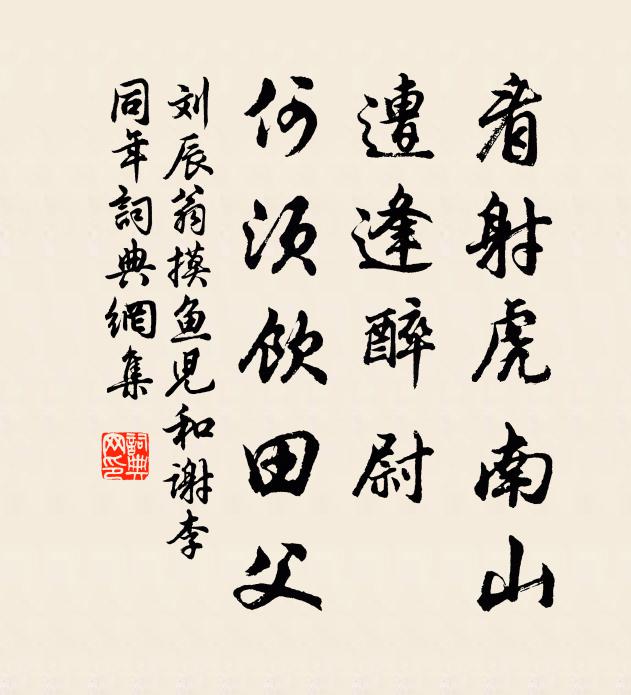 看射虎南山
遭逢醉尉
何须饮田父
刘辰翁摸鱼児和谢李
同年詞典網集
詞典
网印